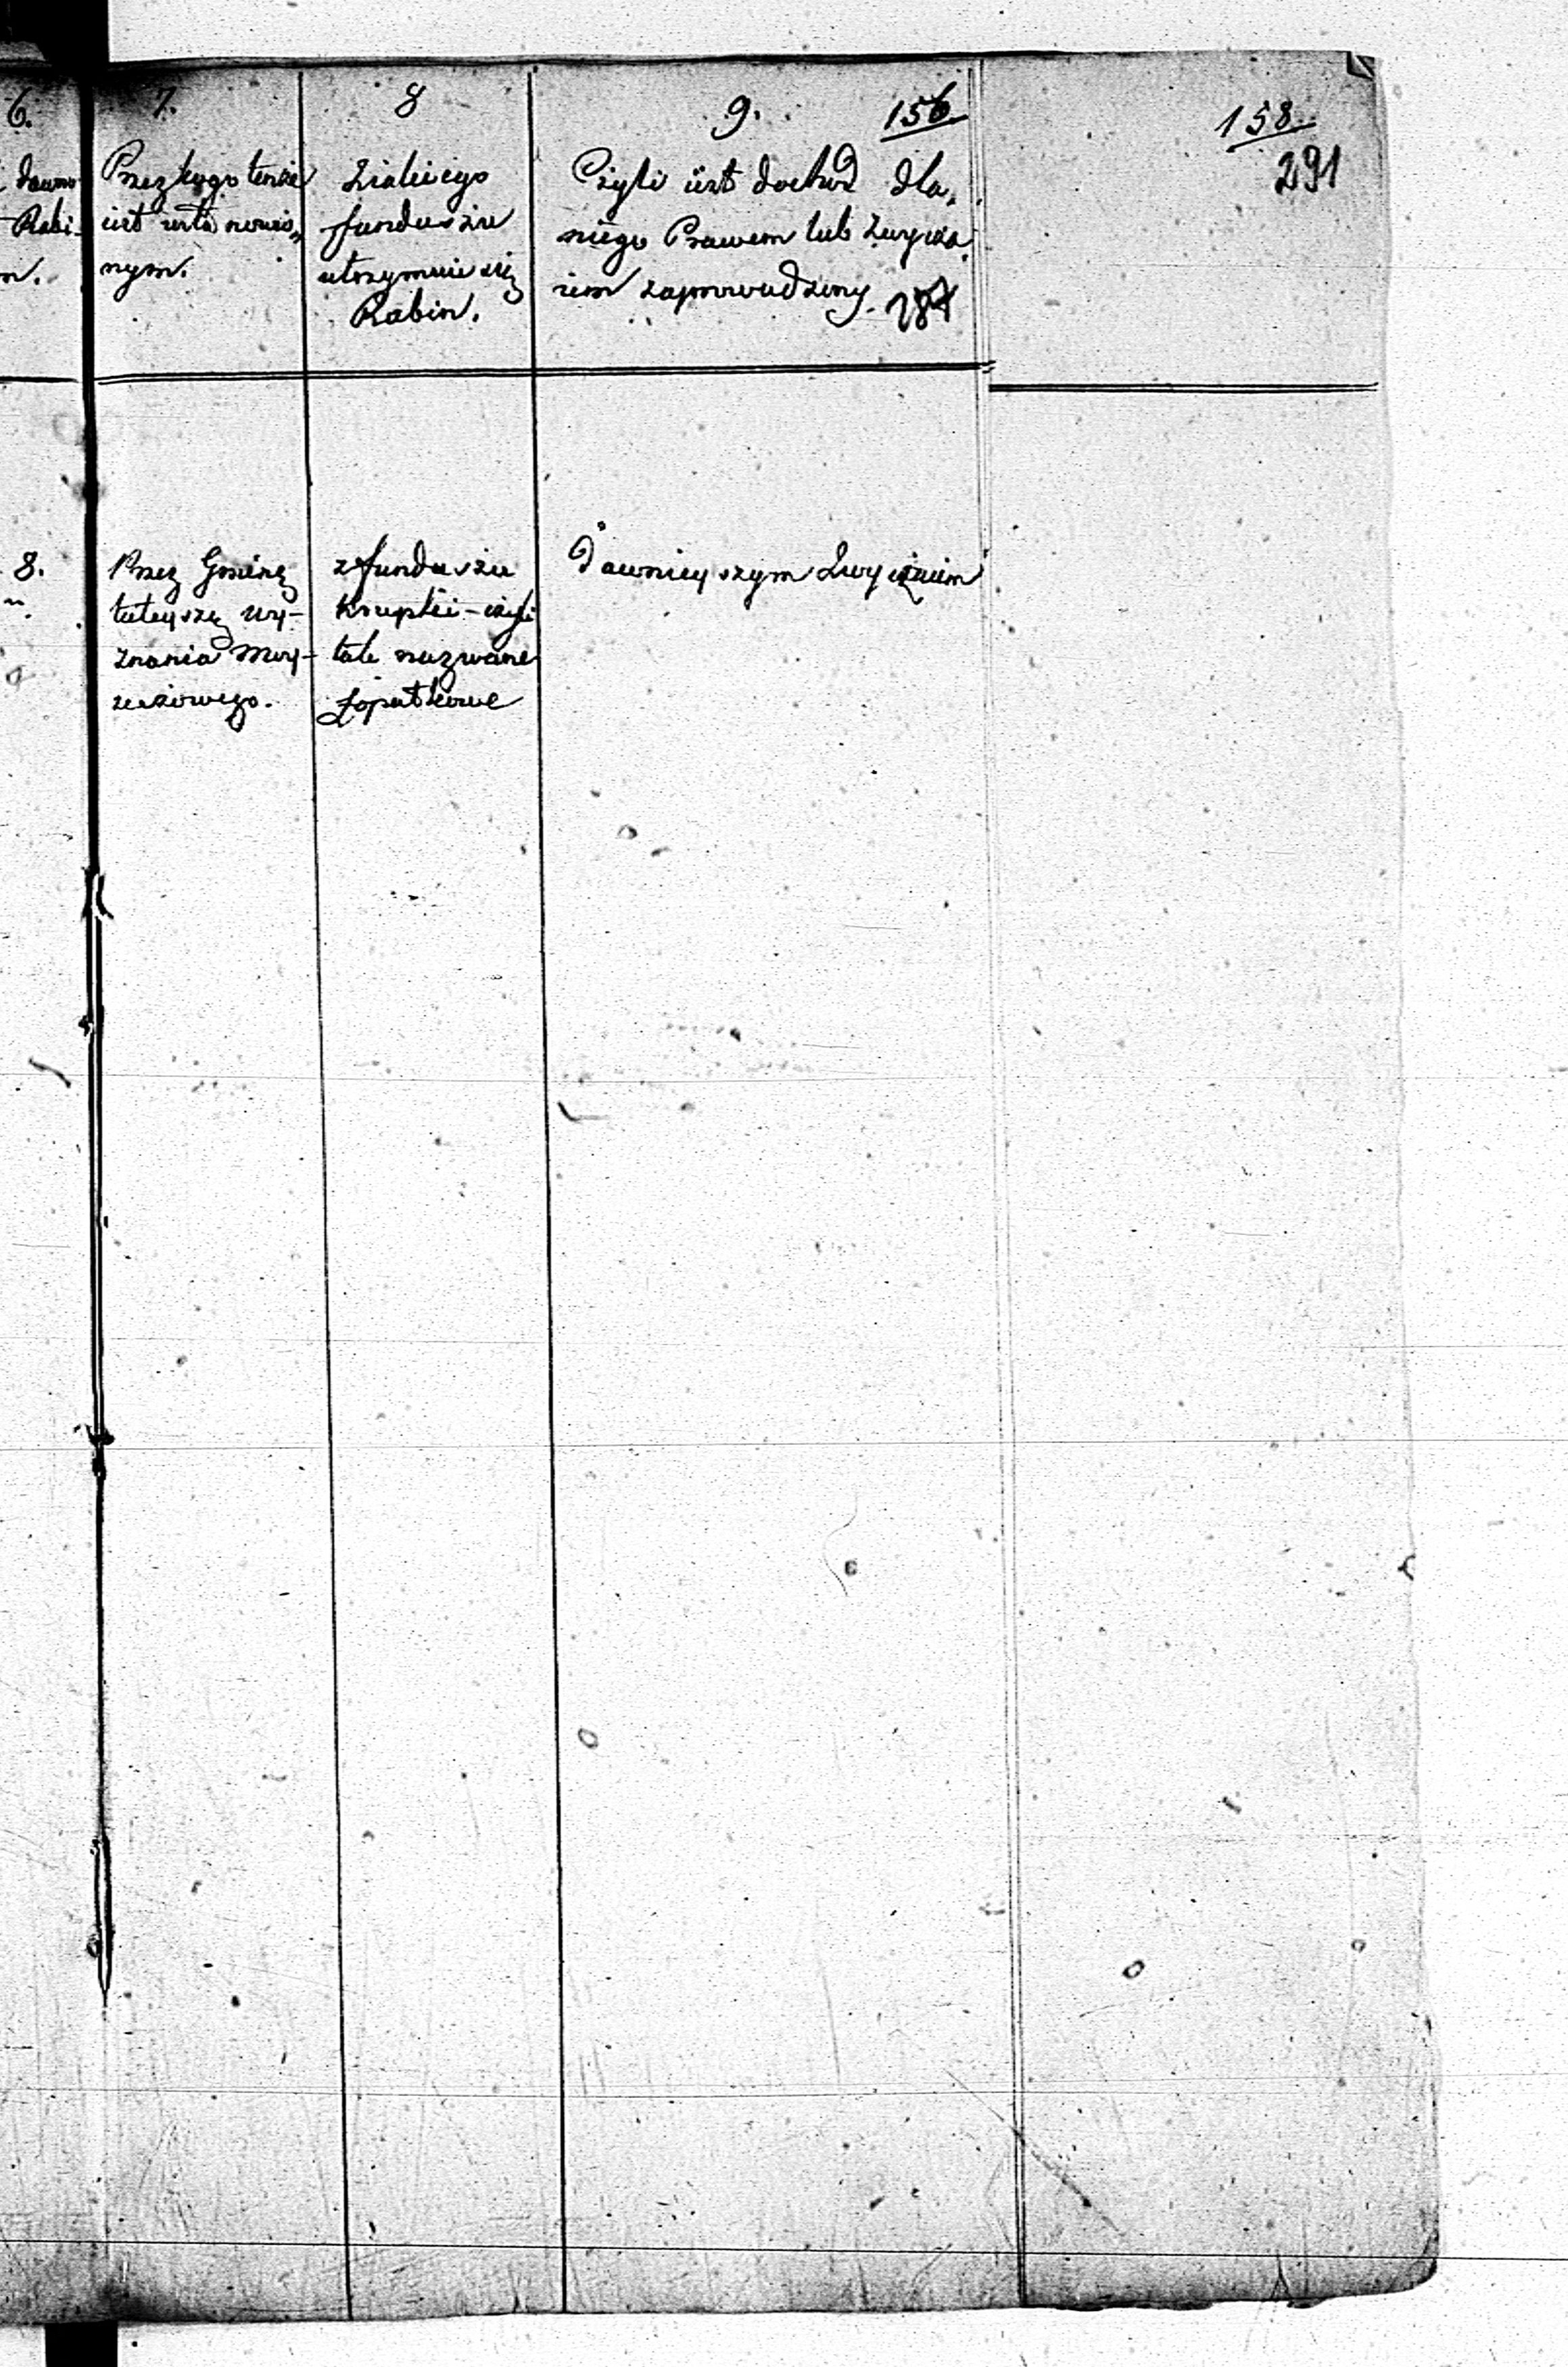 6.
dawno
Rabi-
n.
7.
Przez kogo tenże
iest usta nowio„
nym.
8
Z iakiego
funduszu
utrzymuie się
Rabin.
9.
156.
Czyli iest dochód dla
niego Prawem lub Zwycza
iem zaprowadzony.
287
158.
291
8.
Przez Gminę
tuteyszą wy-
znania Moy-
żeszowego.
z funduszu
Krupki - czyli
tak nazwane
Łopatkowe
Dawnieyszym Zwyczaiem